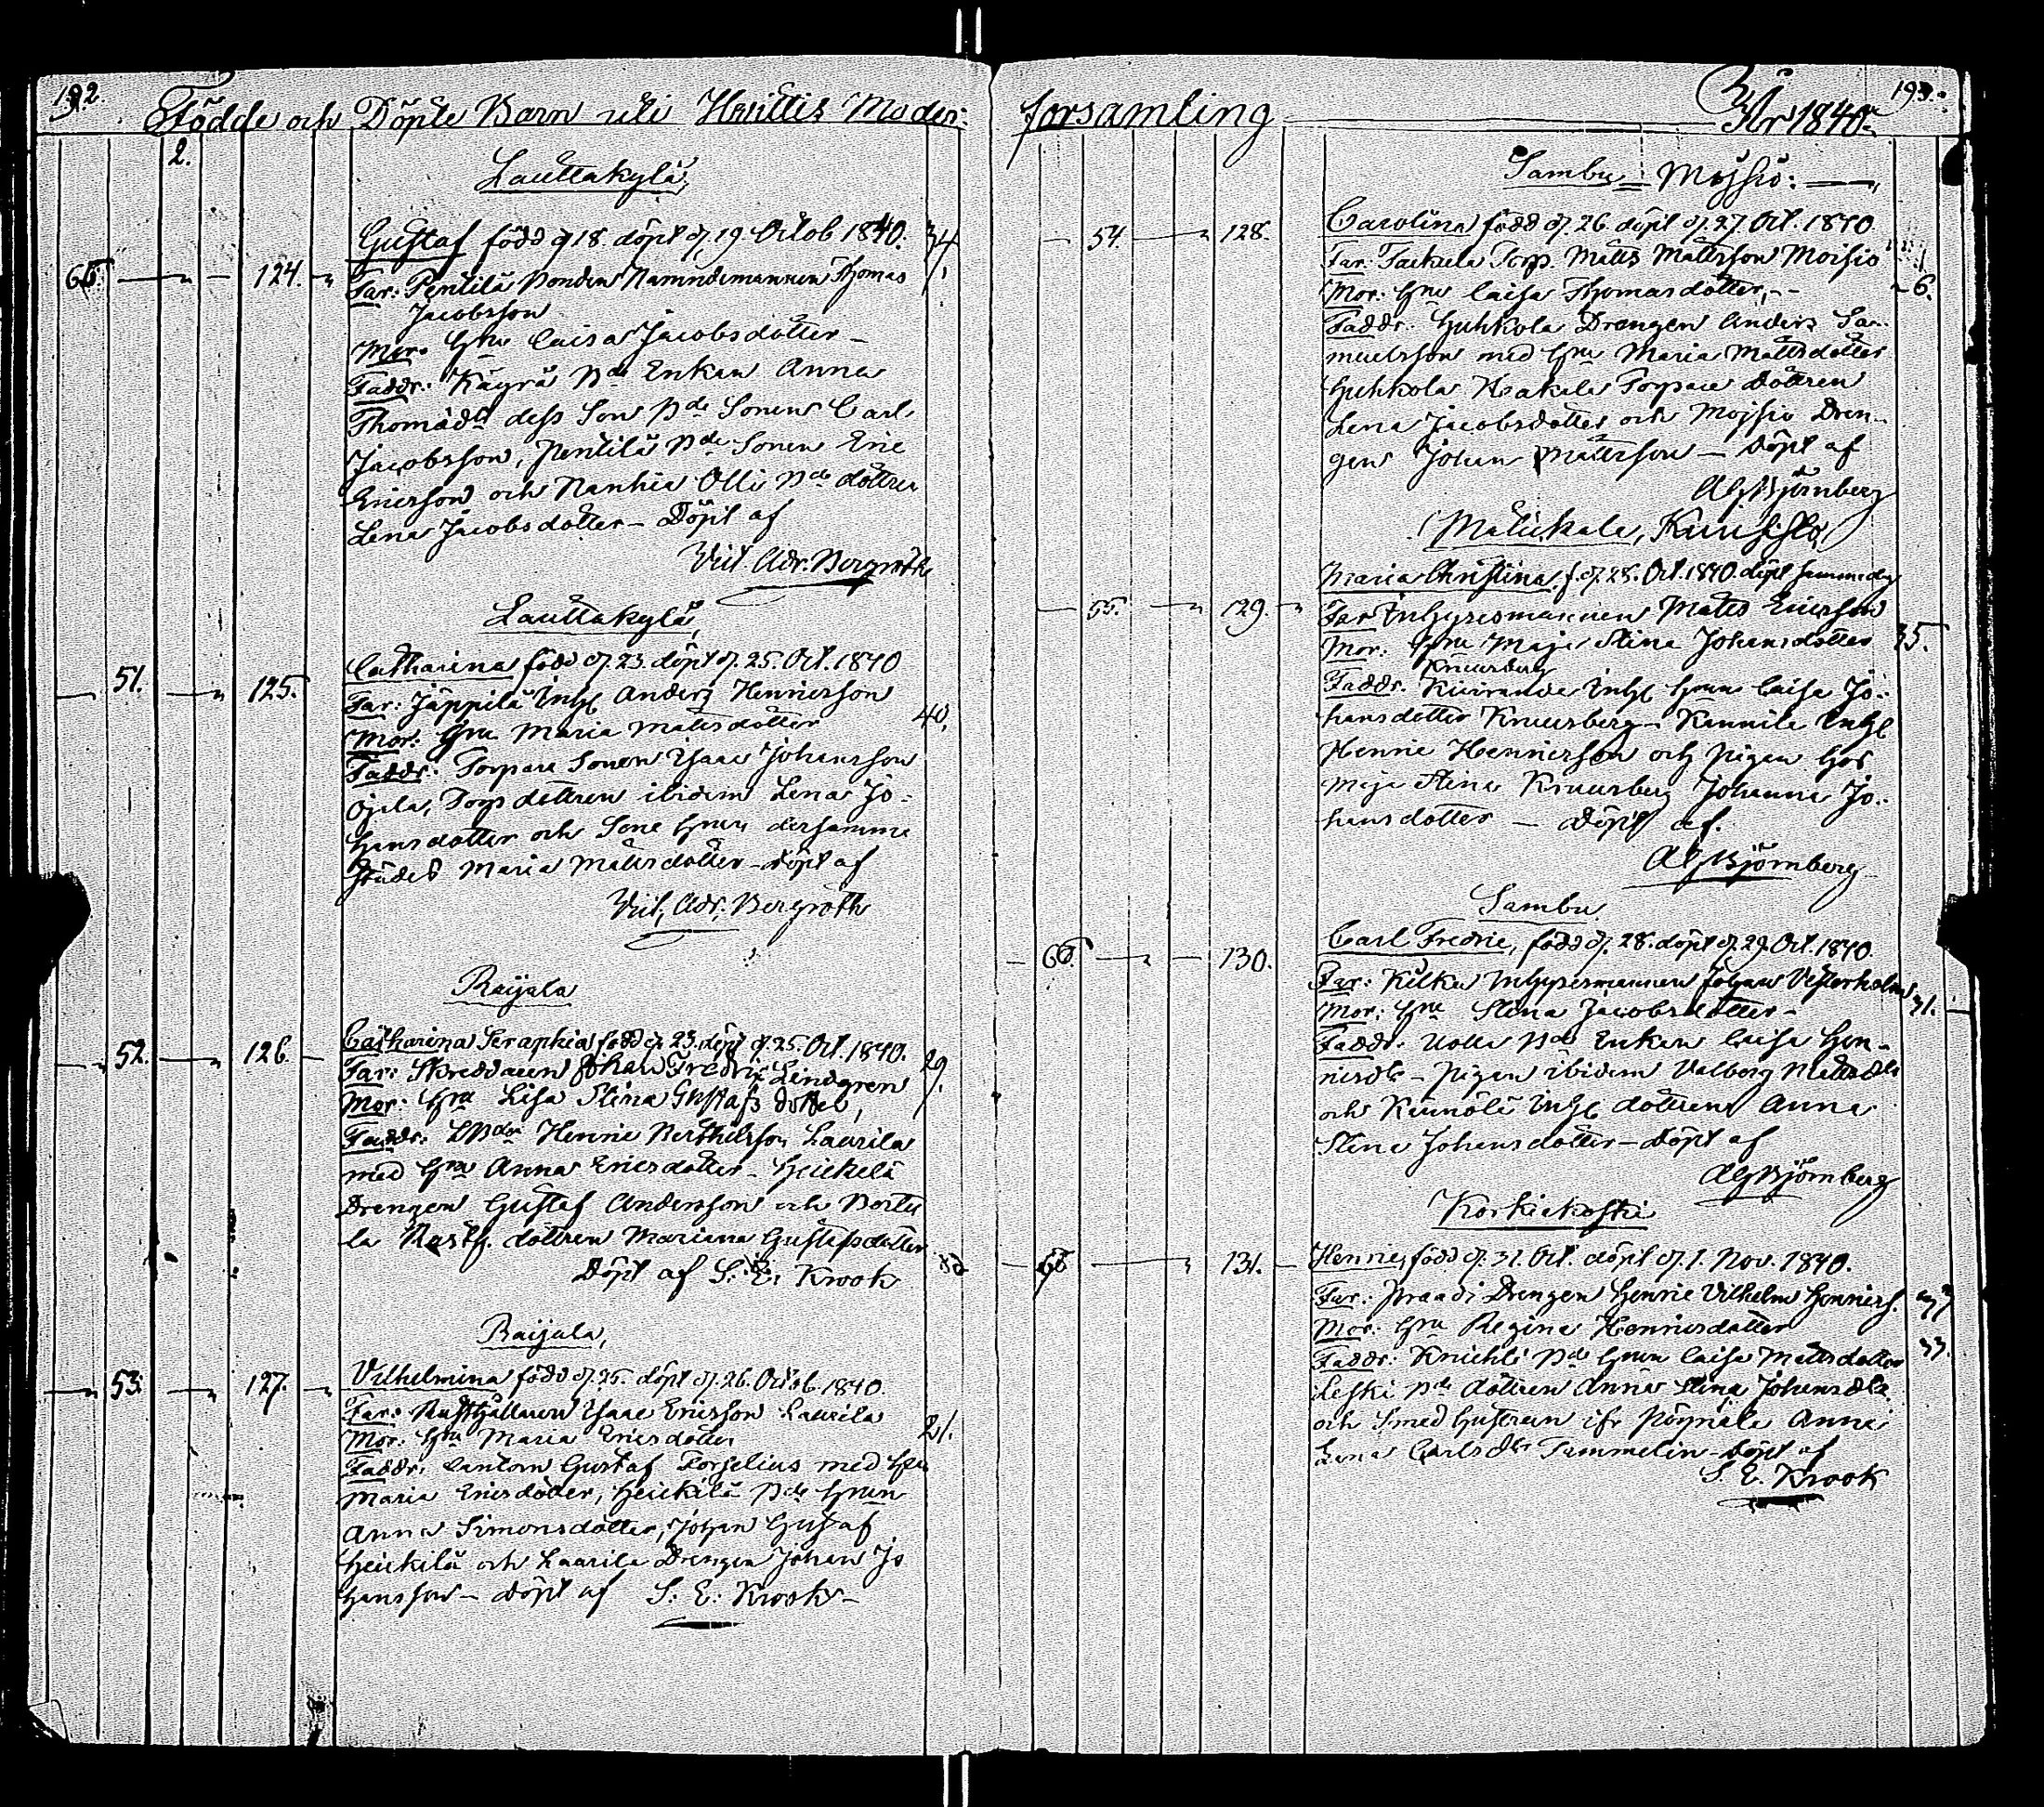 192.
Födde och Döpte Barn uti Hvittis Moder:
2.
Lauttakylä,
Gustaf född d. 18. döpt d. 19. Octob 1840. 34
65. 124. Far: Pentilä Bonden Nämndemannen Thomas
Jacobsson
Mor: Hru Caisa Jacobsdotter –
Faddr: Käyrä Bde Enkan Anna
Thomädr dess Son Bde Sonen Carl
Jacobsson, Pentilä Bde Sonen Eric
Ericsson och Nanhia Olli Bde döttren
Lena Jacobsdotter – Döpt af
Vict. Adr. Bergroth
Lauttakylä,
Catharina född d. 23. döpt d. 25. Oct. 1840
51. 125. Far: Jäppilä Inh. Anders Henricsson
Mor: Hru Maria Mattsdotter 40.
Faddr: Torpare Sonen Isaac Johansson
Ojela, Torp dottren ibidem Lena Jo-
hansdotter och Sone Hrun dersamma
städes Maria Mattsdotter – döpt af
Vict. Adr. Bergroth
Raijala
Catharina Seraphia född d. 23. döpt d. 25. Oct. 1840.
52. 126. Far: Skreddaren Johan Fredric Lindgren 29.
Mor: Hru Lisa Stina Gustafs dotter,
Faddr: Henric Berthilsson Laurila
med Hru Anna Ericsdotter – Heickelä
Drengen Gustaf Andersson och Bertu
la Rusth. dottren Mariana Gustafsdotter
Döpt af S. E. Krook
Raijala,
Vilhelmina född d. 25. döpt d. 26. Octob. 1840.
53. 127. Far: Rusthållaren Isaac Ericsson Laurila
Mor: Hru Maria Ericsdotter 21.
Faddr: Cantorn Gustaf Forselius med Hru
Maria Ericsdotter, Heickilä Bde Hrun
Anna Simonsdotter, Johan Gustaf
Heickilä och Laurila Drengen Johan Jo
hansson – Döpt af S. E. Krook –
193.
forsamling År 1840.
Sambu Mojsio:
54. 128. Carolina född d. 26. döpt d. 27. Oct. 1840.
Far: Torp. Matts Mattsson Moisio
Mor: Hru Caisa Thomasdotter, – 6.
Faddr: Huhkola Drengen Anders Sa-
muelsson med Hru Maria Mattsdotter
Huhkola Torpare dottren
Lena Jacobsdotter och Mojsio Dren-
gen Johan Mattsson – Döpt af
Alf Björnberg
Maurikala,
Maria Christina f. d. 28. Oct. 1840. döpt samma dag
55. 129. Far Inhysesmannen Matts Ericsson
Mor: Hru Maja Stina Johansdotter 35.
Knuusberg
Faddr: Inh. Hrun Caisa Jo-
hansdotter Knuusberg – Kannila Inh.
Henric Henricsson och pigan hos
Maja Stina Knuusberg Johanna Jo-
hansdotter – Döpt af.
Alf Björnberg
Sambu
Carl Fredric, född d. 28. döpt d. 29. Oct. 1840.
66. 130. Far: Kilku Inhysesmannen Johan Vesterholm
Mor: Hru Stina Jacobsdotter – 31.
Faddr: Uolla Bde Enkan Caisa Hen-
ricsdr – Pigan ibidem Valborg Mattsdr
och Inh. dottren Anna
Stina Johansdotter – Döpt af
Alf Björnberg
Korkiakoski
131. Henric, född d. 31. Oct. döpt d. 1. Nov. 1840.
Far: Praadi Drengen Henric Vilhelm Henrics.
Mor: Hru Regina Henricsdotter
Faddr: Knichti Bde Hrun Caisa Mattsdotter 33.
Leski Bde dottren Anna Stina Johansdr
och Smed Hustrun ifr Anna
Lena Carlsdr Tammelin – Döpt af
S. E. Krook